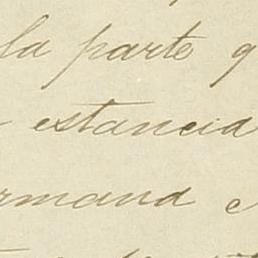 la parte q
estancia
rmana e